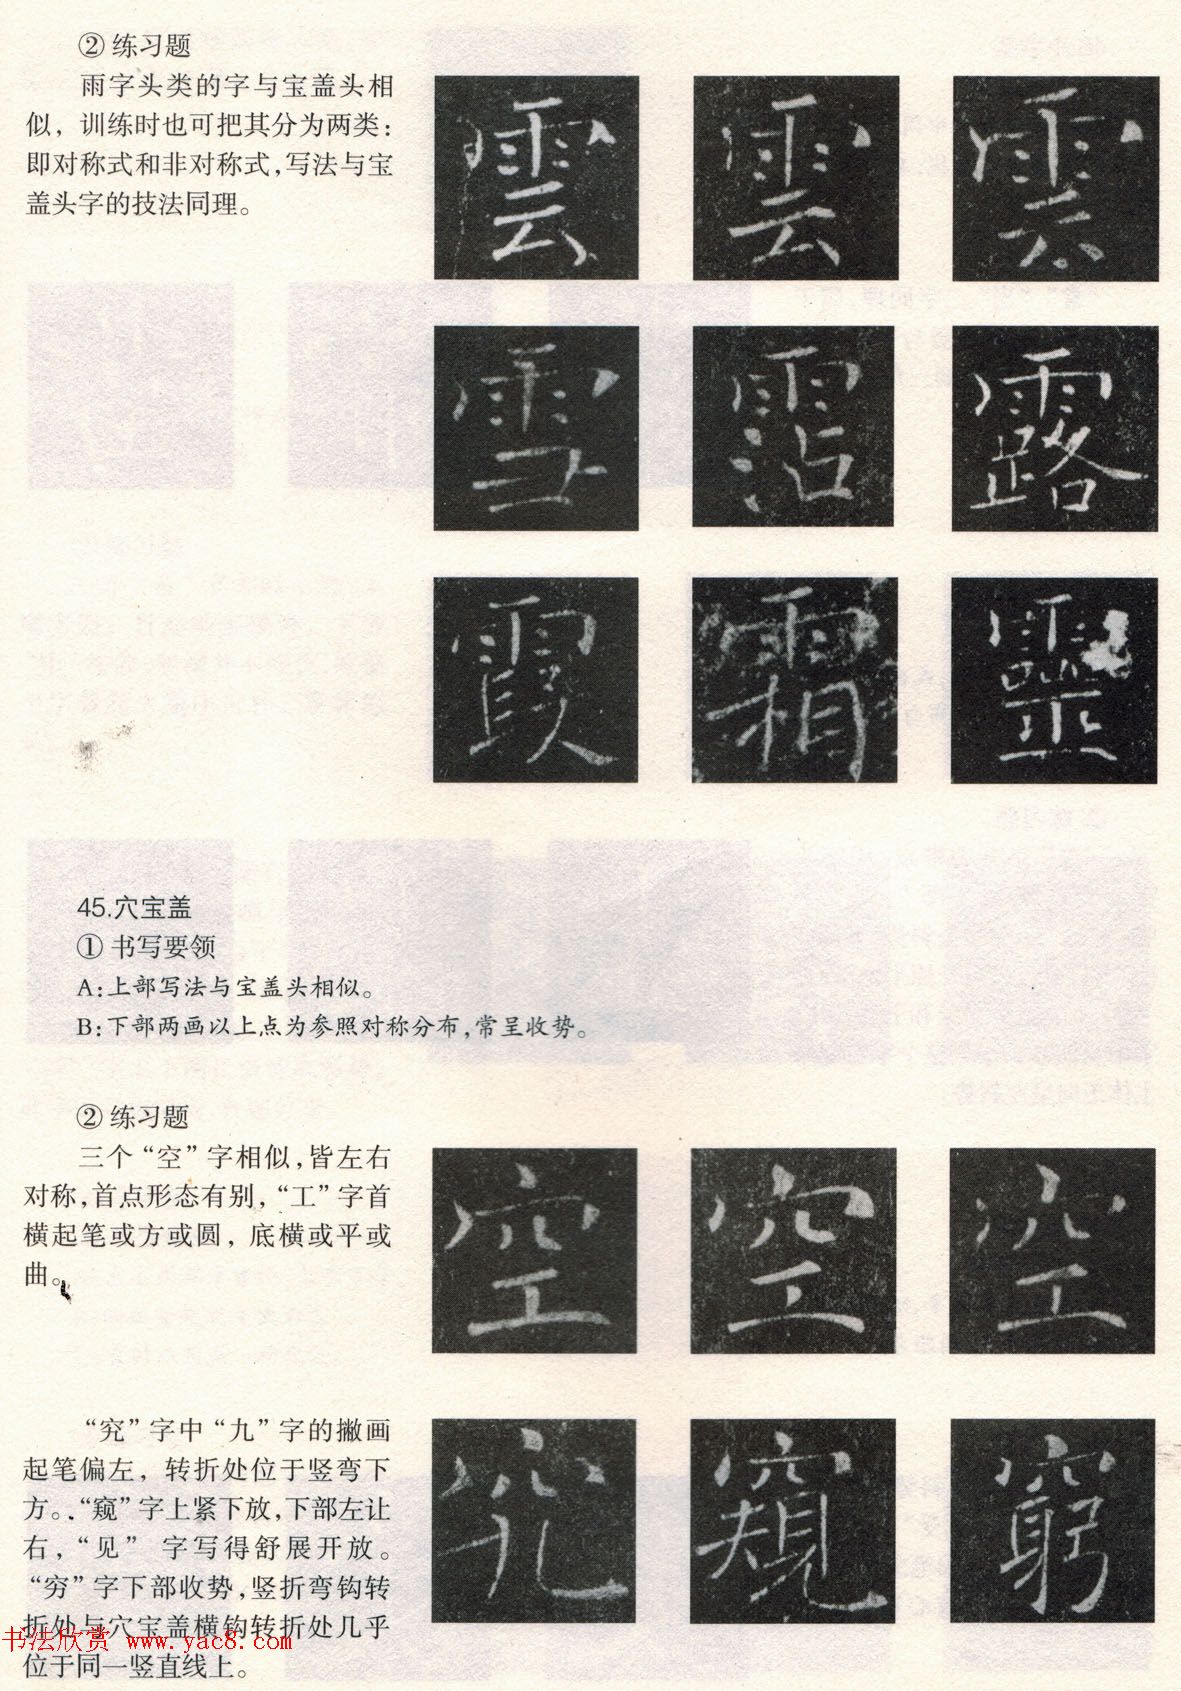 ② 练习题
雨字头类的字与宝盖头相
似，训练时也可把其分为两类：
即对称式和非对称式，写法与宝
盖头字的技法同理。
雲 雲 雲
雪 霑 露
霞 霜 靈
45.穴宝盖
① 书写要领
A：上部写法与宝盖头相似。
B：下部两画以上点为参照对称分布，常呈收势。
② 练习题
三个“空”字相似，皆左右
对称，首点形态有别，“工”字首
横起笔或方或圆，底横或平或
曲。
空 空 空
“究”字中“九”字的撇画
起笔偏左，转折处位于竖弯下
方。“窥”字上紧下放，下部左让
右，“见”字写得舒展开放。
“穷”字下部收势，竖折弯钩转
折处与穴宝盖横钩转折处几乎
位于同一竖直线上。
究 窺 窮
书法欣赏 www.yac8.com